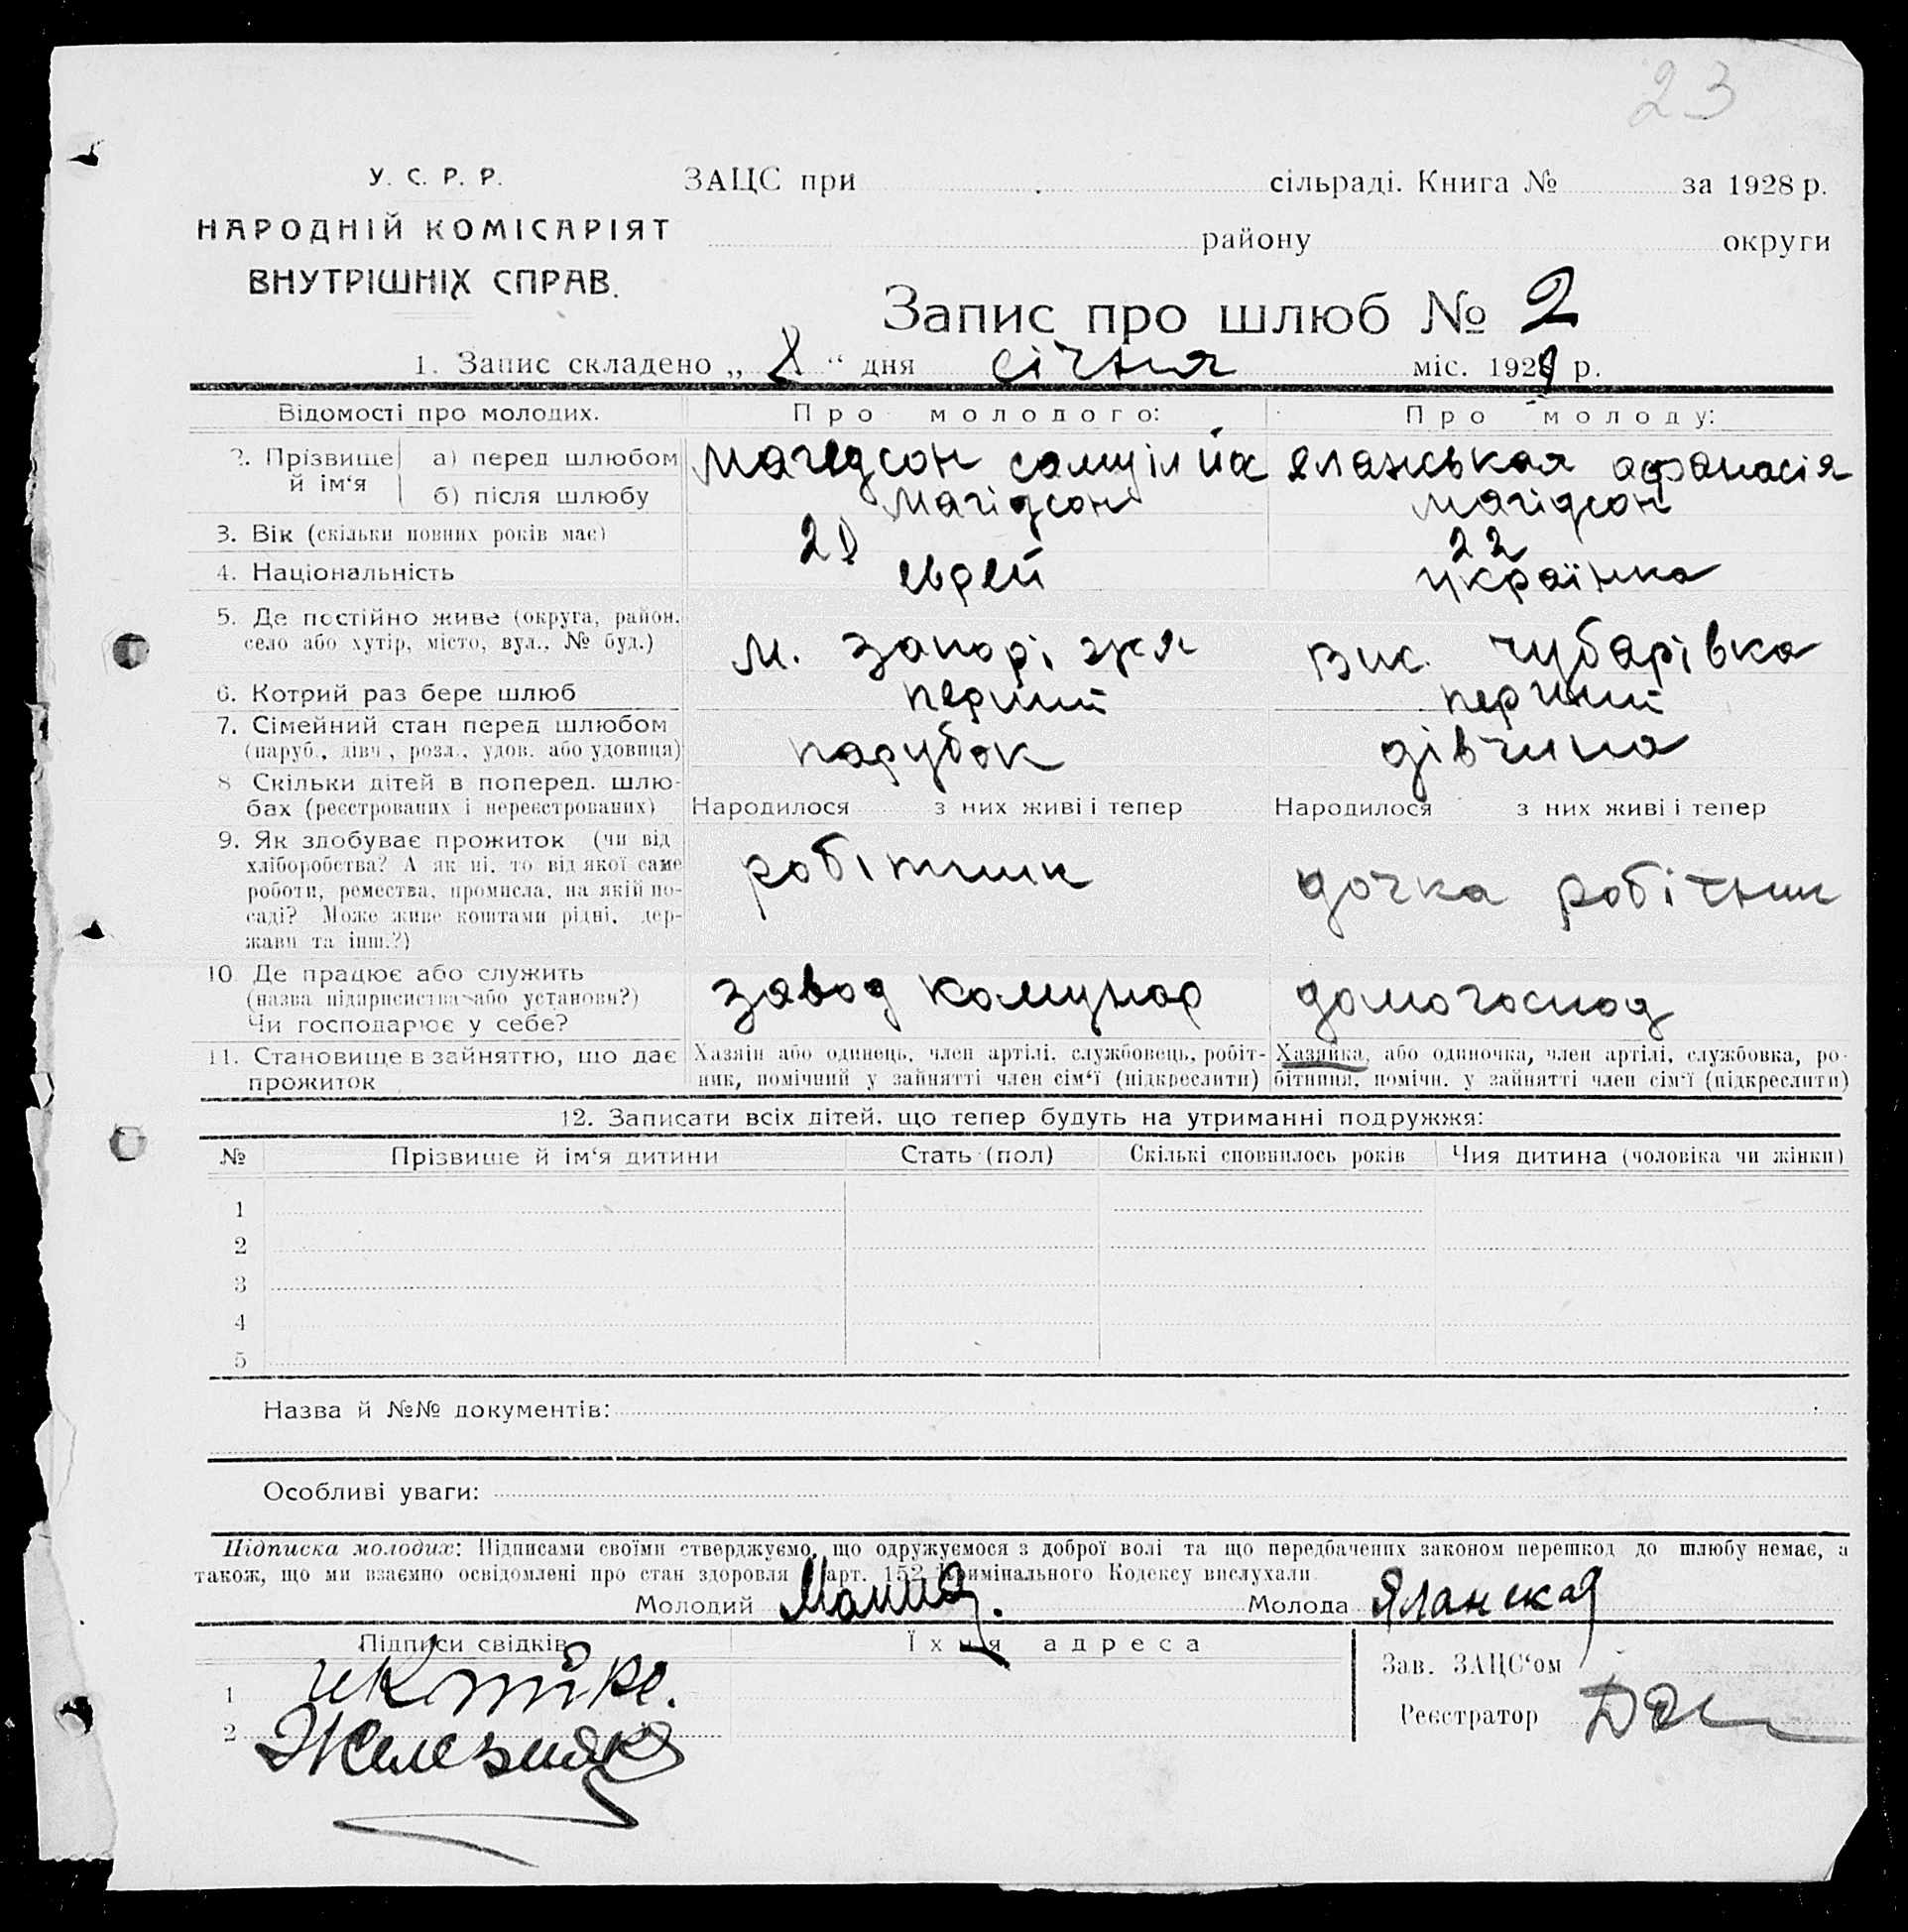 23
У. С. Р. Р.
НАРОДНІЙ КОМІСАРІЯТ
ВНУТРІШНІХ СПРАВ.
ЗАЦС при сільраді. Книга № за 1928 р.
району округи
Запис про шлюб № 2
1. Запис складено „ 8 “ дня січня міс. 1929 р.
Відомості про молодих. Про молодого: Про молоду:
2. Прізвище й ім‘я а) перед шлюбом Магедсон Яланськая Афанасія
б) після шлюбу Магідсон Магідсон
3. Вік (скільки повних років має) 22
4. Національність еврей українка
5. Де постійно живе (округа, район, село або хутір, місто, вул., № буд.) м. Запоріжжя Чубарівка
6. Котрий раз бере шлюб перший перший
7. Сімейний стан перед шлюбом (паруб., дівч., розл., удов. або удовиця) парубок дівчина
8 Скільки дітей в поперед. шлюбах (реєстрованих і нереєстрованих) Народилося з них живі і тепер Народилося з них живі і тепер
9. Як здобуває прожиток (чи від хліборобства? А як ні, то від якої саме роботи, ремества, промисла, на якій посаді? Може живе коштами рідні, держави та інш.?) робітник дочка робітник
10 Де працює або служить (назва підприємства або установи?) Чи господарює у себе? завод комунар домогоспод
11. Становище в зайняттю, що дає прожиток Хазяїн або одинець, член артілі, службовець, робітник, помічний у зайнятті член сім‘ї (підкреслити) Хазяйка, або одиночка, член артілі, службовка, робітниця, помічн. у зайнятті член сім‘ї (підкреслити)
12. Записати всіх дітей, що тепер будуть на утриманні подружжя:
№ Прізвище й ім‘я дитини Стать (пол) Скількі сповнилось років Чия дитина (чоловіка чи жінки)
1
2
3
4
5
Назва й №№ документів:
Особливі уваги:
Підписка молодих: Підписами своїми стверджуємо, що одружуємося з доброї волі та що передбачених законом перешкод до шлюбу немає, а
також, що ми взаємно освідомлені про стан здоровля арт. 152 Кримінального Кодексу вислухали
Молодий Молода Яланская
Підписи свідків Їхня адреса Зав. ЗАЦС‘ом
1
Реєстратор
2